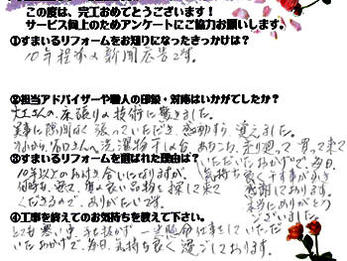 この度は、完工おめでとうございます!
サービス向上のためアンケートにご協力お願いします。
①すまいるリフォームをお知りになったきっかけは?
10年程前の新聞広告です。
②担当アドバイザーや職人の印象・対応はいかがでしたか?
大工さんの、床張りの技術に驚きました。
実に隙間なく張っていただき、感動すら覚えました。
洗濯物干し台 あちこち、走り廻って買って来て
③すまいるリフォームを選ばれた理由は?
いただいたおかげで、毎日、
10年以上のお付き合いになりますが、
気持ち良く干す事が出来
何時も、安くて、質の良い品物を探して来て
感謝しております。
くださるので、ありがたいです。
本当にありがとう
ございました。
④工事を終えてのお気持ちを教えて下さい。
とても寒い中、手も抜かず一生懸命仕事をしていただ
いたおかげで、毎日、気持ち良く過ごしております。